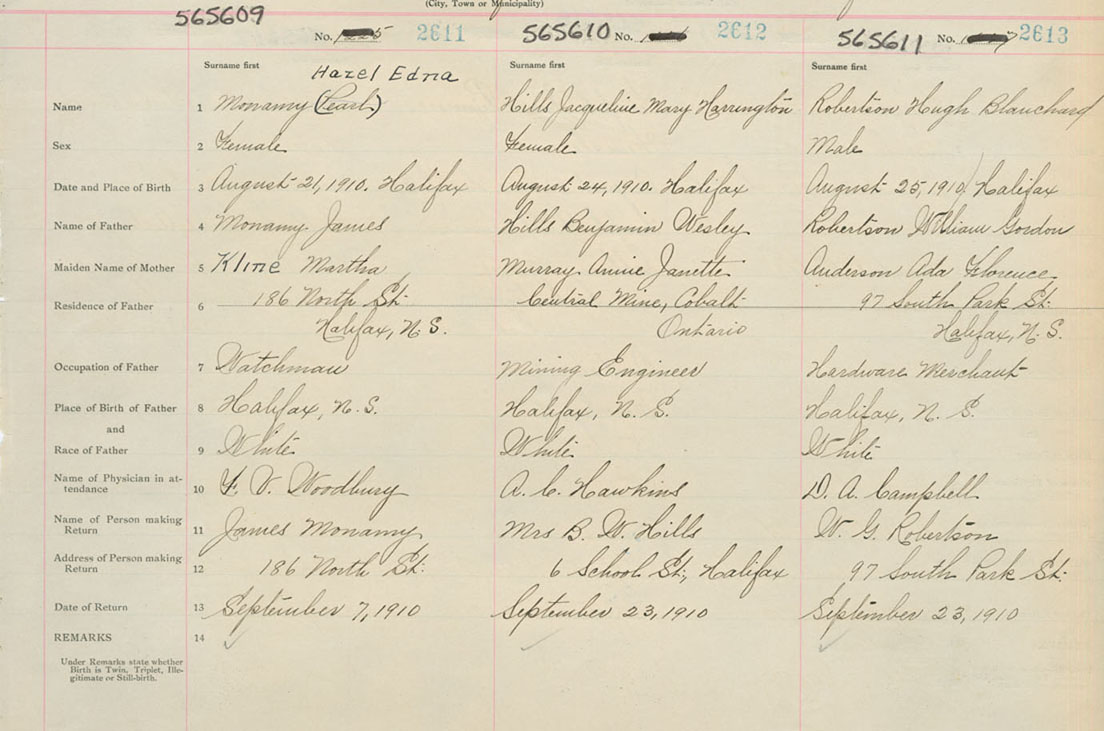 (City, Town or Municipality)
565609 No. 2611 565610 No. 2612 565611 No. 2613
Surname first Surname first Surname first
Hazel Edna
Name 1 Monamy (Pearl) Hills Jacqueline Mary Harrington Robertson Hugh Blanchard
Sex 2 Female Female Male
Date and Place of Birth 3 August 21, 1910. Halifax August 24, 1910. Halifax August 25, 1910, Halifax
Name of Father 4 Monamy James Hills Benjamin Wesley Robertson William Gordon
Maiden Name of Mother 5 Kline Martha Murray Annie Janette Anderson Ada Florence
Residence of Father 6 186 North St. Central Mine, Cobalt 97 South Park St.
Halifax, N.S. Ontario Halifax, N.S.
Occupation of Father 7 Watchman Mining Engineer Hardware Merchant
Place of Birth of Father 8 Halifax, N.S. Halifax, N.S. Halifax, N.S.
and
Race of Father 9 White White White
Name of Physician in at-
tendance 10 F. V. Woodbury A. C. Hawkins D. A. Campbell
Name of Person making
Return 11 James Monamy Mrs B. W. Hills W. G. Robertson
Address of Person making
Return 12 186 North St. 6 School St., Halifax 97 South Park St.
Date of Return 13 September 7, 1910 September 23, 1910 September 23, 1910
REMARKS 14
Under Remarks state whether
Birth is Twin, Triplet, Ille-
gitimate or Still-birth.